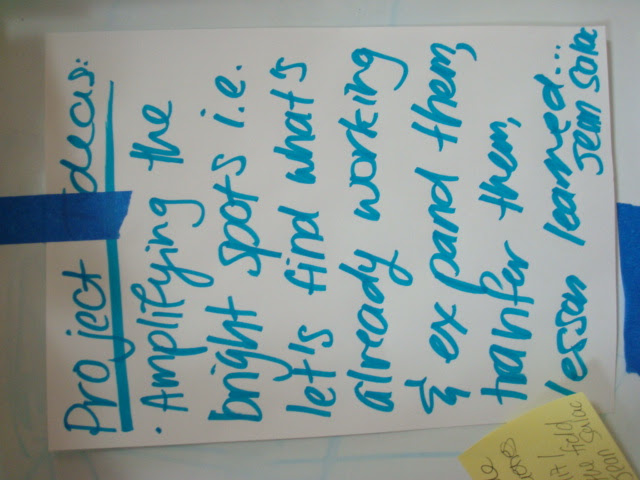 Project Ideas:
· Amplifying the
bright spots i.e.
let's find what's
already working
& expand them,
tranfer them,
lesson learned...
Jean Salac
the field
Jean Salac